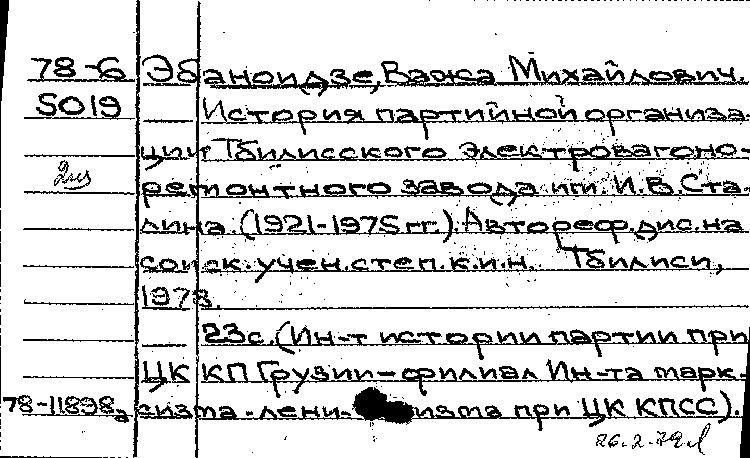 78-6 Эбаноидзе, Важа Михайлович.
5019 История партийной организа-
ции Тбилисского электровагоно-
2из ремонтного завода им. И.В. Ста-
лина. (1921-1975гг.). Автореф. дис. на
соиск. учен. степ. к.и.н. Тбилиси,
1978.
23с. (Ин-т истории партии при
ЦК КП Грузии-филиал Ин-та марк-
78-11898а сизма-лени- изма при ЦК КПСС).
26.2.79